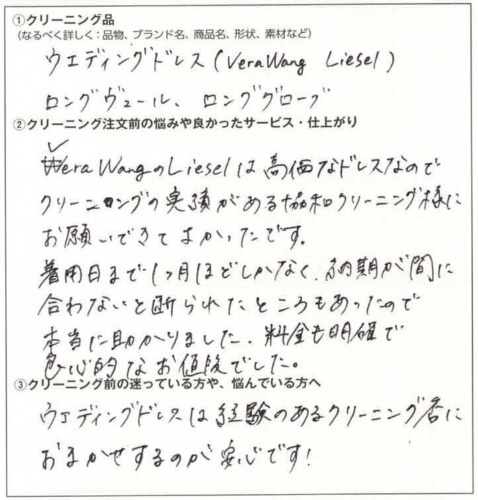 ①クリーニング品
(なるべく詳しく:品物、ブランド名、商品名、形状、素材など)
ウエディングドレス(VeraWang Liesel)
ロングヴェール、ロンググローブ
②クリーニング注文前の悩みや良かったサービス・仕上がり
VeraWangのLieselは高価なドレスなので
クリーニングの実績がある協和クリーニング様に
お願いできてよかったです。
着用日まで1ヶ月ほどしかなく、納期が間に
合わないと断られたところもあったので
本当に助かりました。料金も明確で
良心的なお値段でした。
③クリーニング前の迷っている方や、悩んでいる方へ
ウェディングドレスは経験のあるクリーニング店に
おまかせするのが安心です!